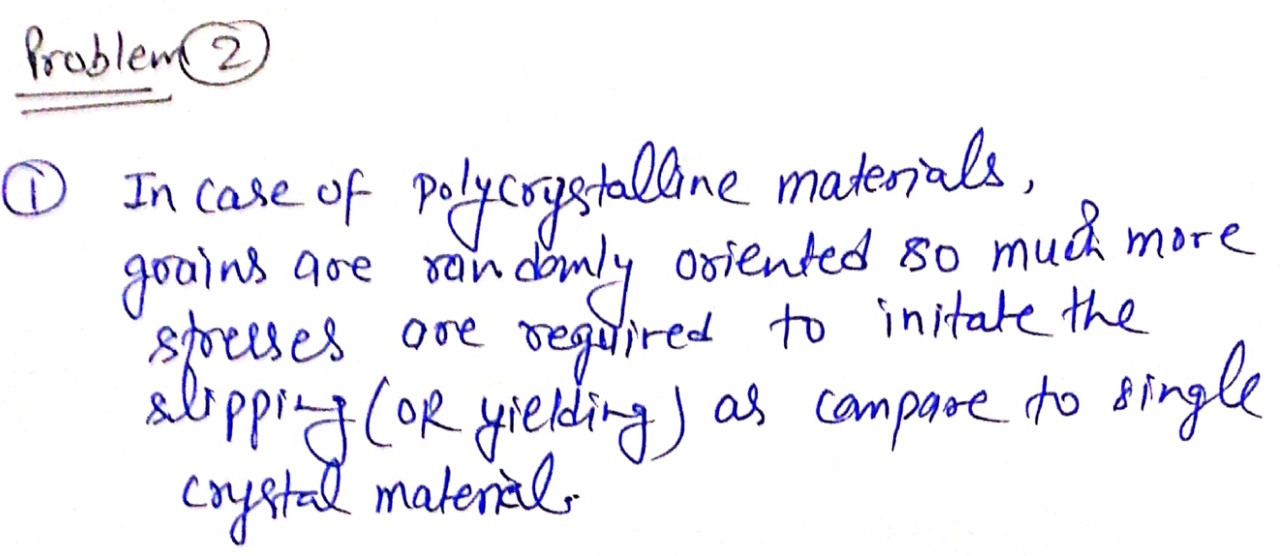 Problem ②
① In case of polycrystalline materials,
grains are randomly oriented so much more
stresses are required to initate the
slipping (OR yielding) as compare to single
crystal material.